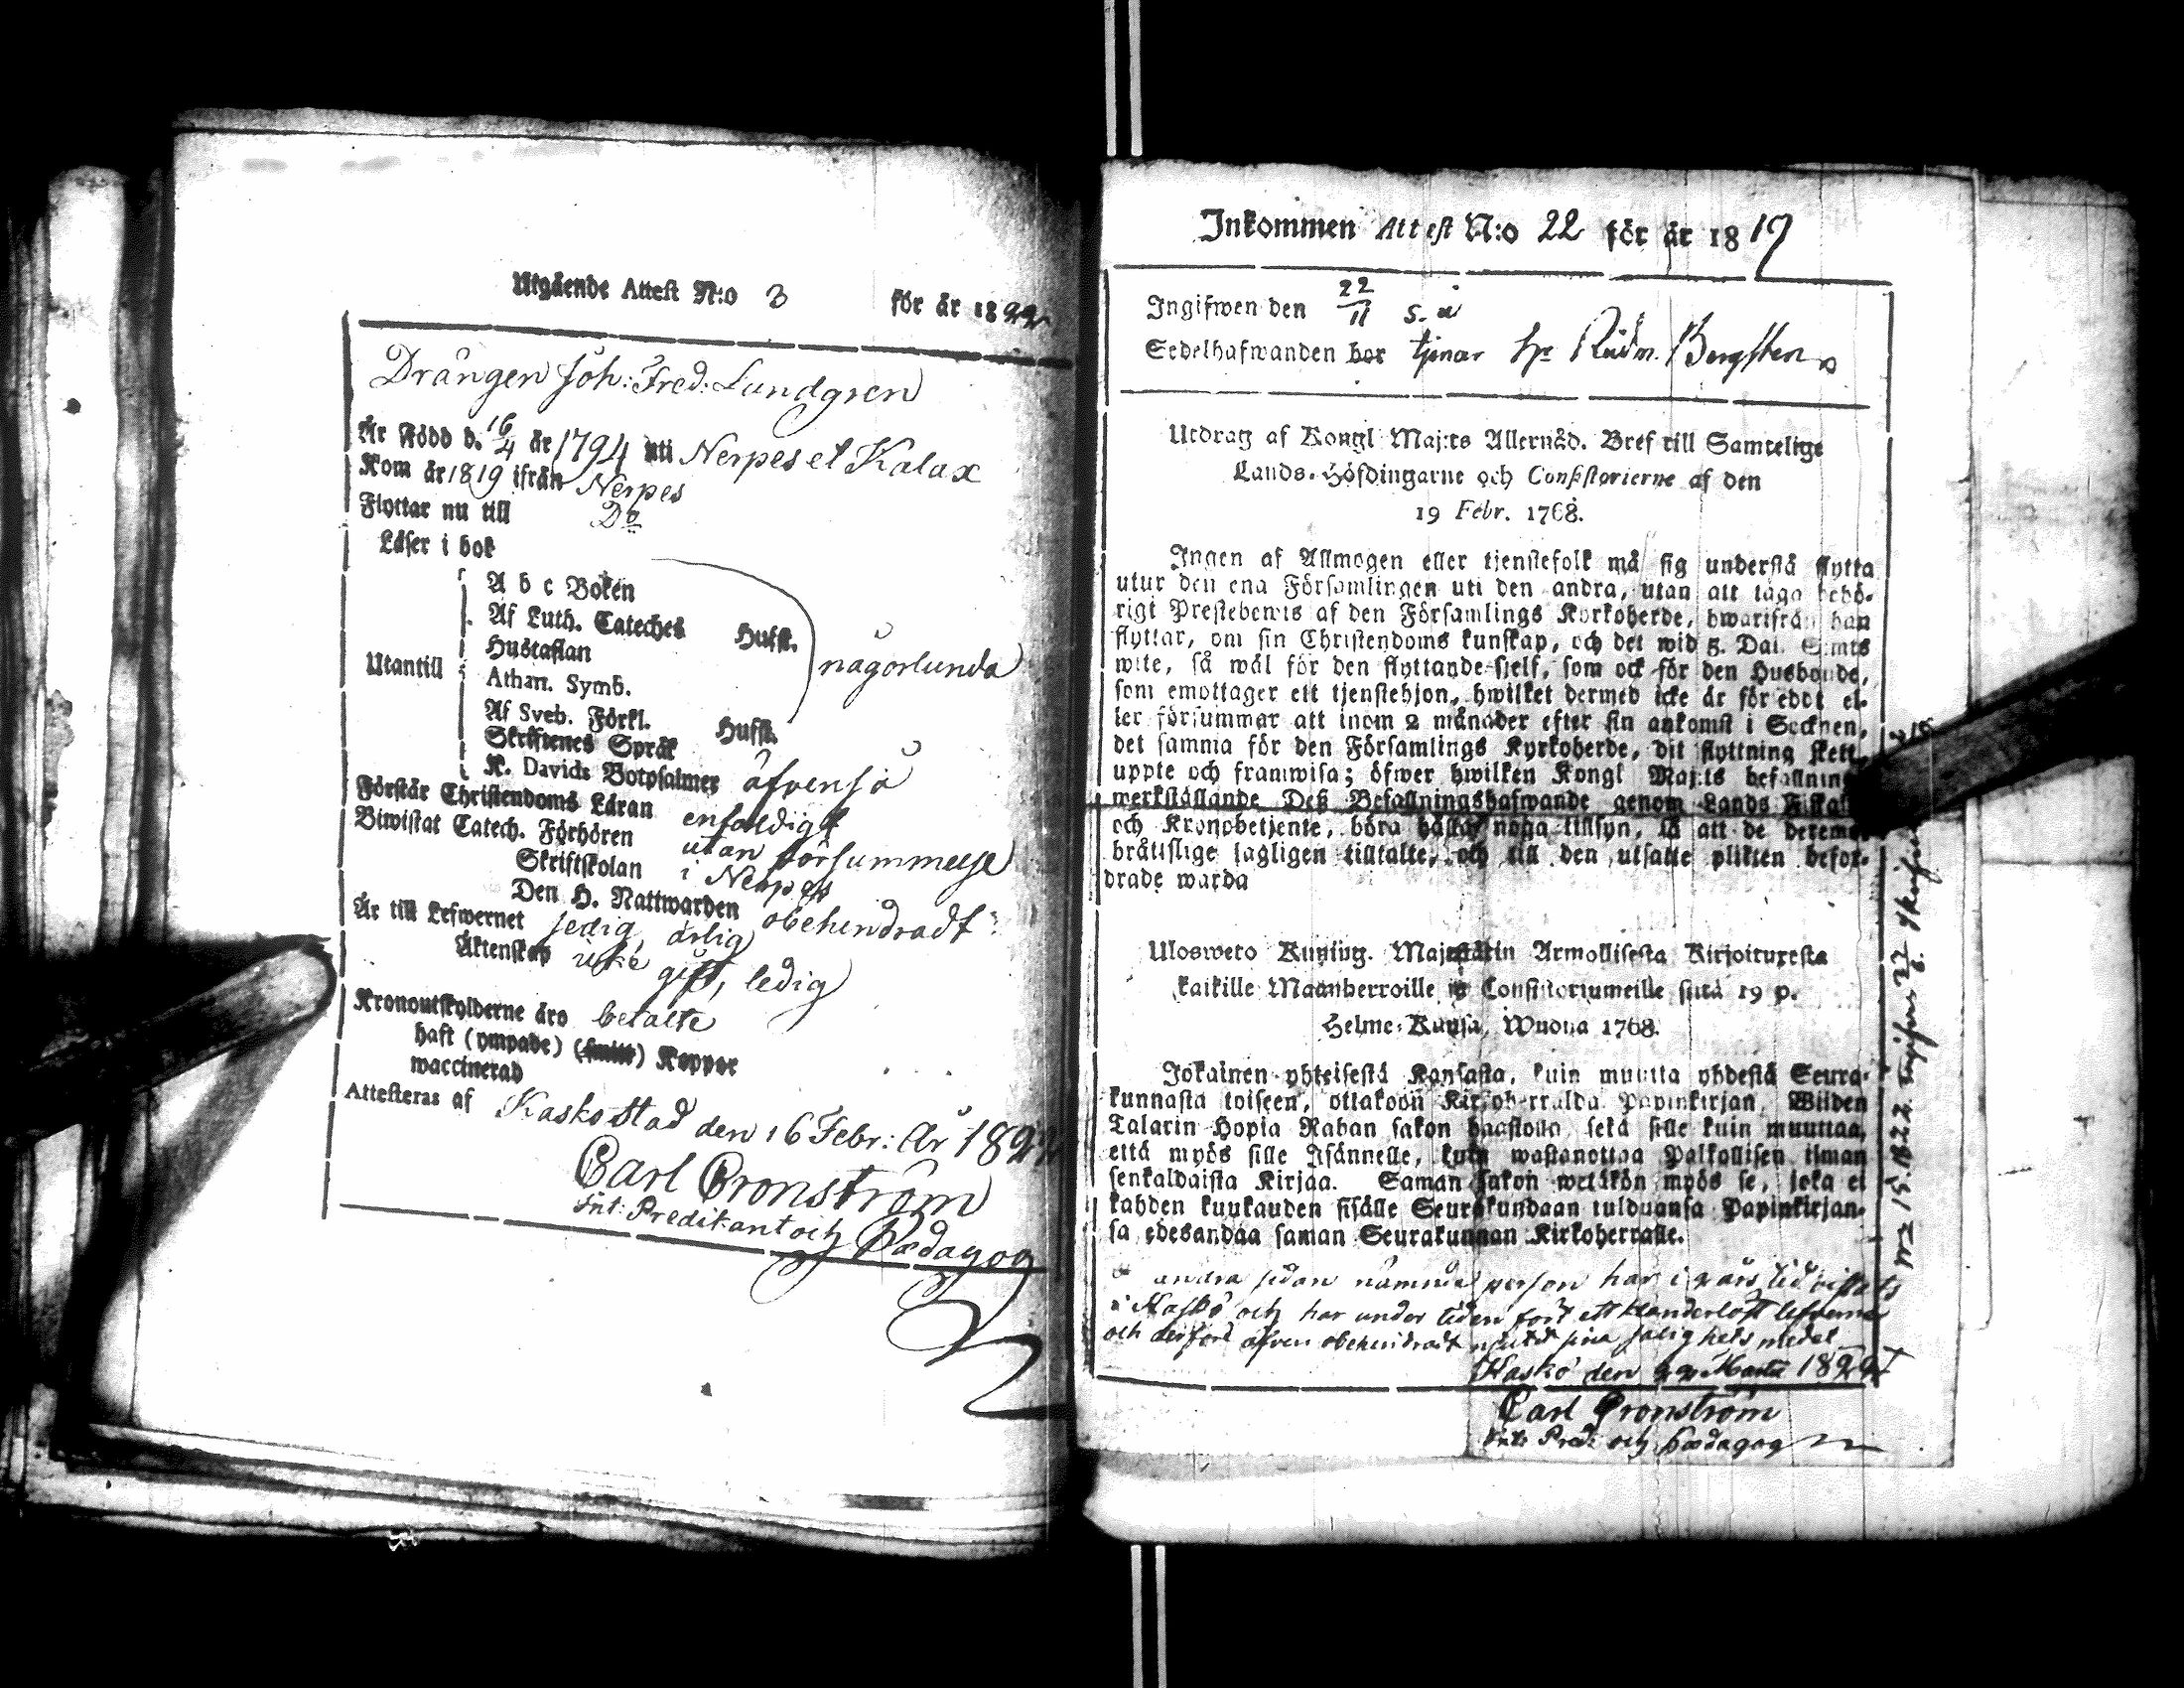 Utgående Attest N:o 3 för år 1822
Drången Joh: Fred: Lundgren
Är Född d. 16/4 år 1794 uti Nerpes et Kalax
Kom år 1819 ifrån Nerpes
Flyttar nu till Do
Läser i bok
A b c Boken
Af Luth. Cateches Hufst.
Hustaflan
någorlunda
Utantill
Athan. Symb.
Af Sveb. Förkl. Hufst.
Skriftenes Språk
K. Davids Botpsalmer åfvenså
Förstår Christendoms Läran enfaldigt
Biwistat Catech. Förhören utan försummelse
Skriftskolan i Nerpes
Den H. Nattwarden obehindradt
Är till Lefwernet sedig, ärlig
Äktenskap icke gift, ledig
Kronoutskylderne äro betalte
haft (ympade) (smitt) Koppor
waccinerad
Attesteras af Kaskö stad den 16 Febr: År 1822
Carl Cronström
Int: Predikant och Pædagog
Inkommen Attest N:o 22 för år 1819
Ingifwen den 22/11 s. å
Sedelhafwanden bor tjenar hr Rådm. Bergsten
Utdrag af Kongl Maj:ts Allernåd. Bref till Samtelige
Lands-Höfdingarne och Consistorierne af den
19 Febr. 1768.
Ingen af Allmogen eller tjenstefolk må sig understå flytta
utur den ena Församlingen uti den andra, utan att taga behö-
rigt Prestebewis af den Församlings Kyrkoherde, hwarifrån han
flyttar, om sin Christendoms kunskap, och det wid 5. Dal. S:mts
wite, så wäl för den flyttande sjelf, som ock för den Husbonde,
som emottager ett tjenstehjon, hwilket dermed icke är föreddt el-
ler försummar att inom 2 månader efter sin ankomst i Socknen,
det samma för den Församlings Kyrkoherde, dit flyttning skett,
uppte och framwisa; öfwer hwilken Kongl Maj:ts befallning
werkställande Deß Befallningshafwande genom Lands Fiskal
och Kronobetjente, böra hålla noga tillsyn, så att de deremot
bråtislige lagligen tilltalte, och till den utsatte plikten befor-
drade warda
Ulosweto Kuning. Majestätin Armollisesta Kirjoituxesta
kaikille Maanherroille ja Consistoriumeille siitä 19 p.
Helme-Kuusa, Wuona 1768.
Jokainen yhteisestä Kansasta, kuin muutta yhdestä Seura-
kunnasta toiseen, ottakoon Kirkoherralda Papinkirjan, Wiiden
Talarin Hopia Rahan sakon haastolla, sekä sille kuin muuttaa,
että myös sille Isännelle, kuin wastanottaa Palkollisen ilman
senkaldaista Kirjaa. Saman sakon wetäkön myös se, joka ei
kahden kuukauden sisälle Seurakundaan tulduansa Papinkirjan-
sa edesandaa saman Seurakunnan Kirkoherralle.
andra sidan nämnda person har i vårs tid vistats
i Kaskö och har under tiden fört ett klanderlöst lefverne
och derföre äfven obehindradt njutit sina salighets medel
Kaskö den 22 Martii 1822
Carl Cronström
Int: Pred: och Pædagog
No 15. 1822. Ingifven 22